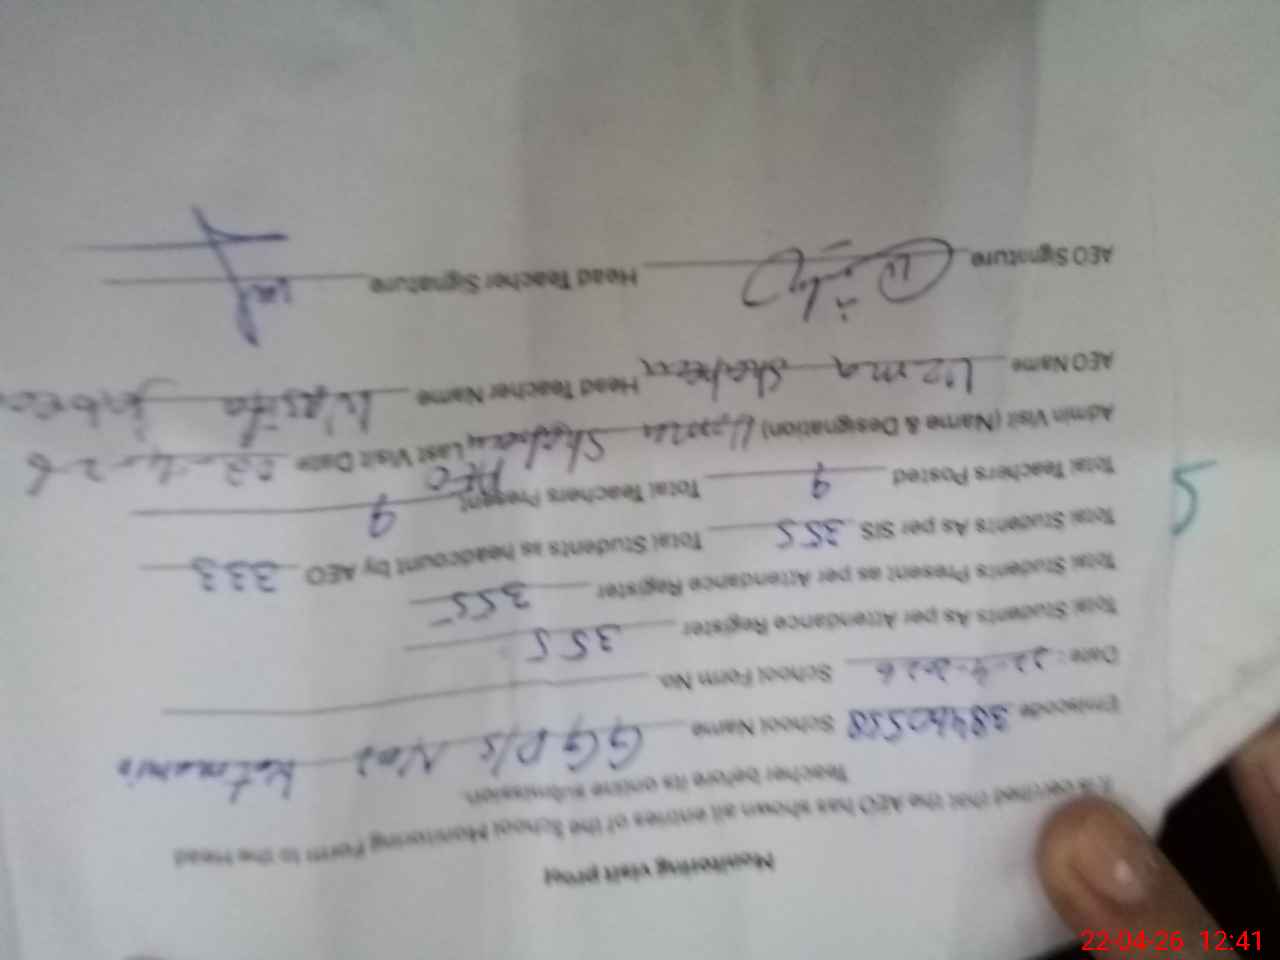 Monitoring visit proof
It is certified that the AEO has shown all entries of the School Monitoring Form to the Head
Teacher before its online submission.
Emiscode 38460558 School Name GGP/S No2
Date: 22-4-2026 School Form No.
Total Students As per Attendance Register 355
Total Students Present as per Attendance Register 355
Total Students As per SIS 355 Total Students as headcount by AEO 333
Total Teachers Posted 9 Total Teachers Present 9
Admin Visit (Name & Designation) Uzma Shaheen AEO Last Visit Date
AEO Name Uzma Shaheen Head Teacher Name
AEO Signature Head Teacher Signature
5
22-04-26 12:41